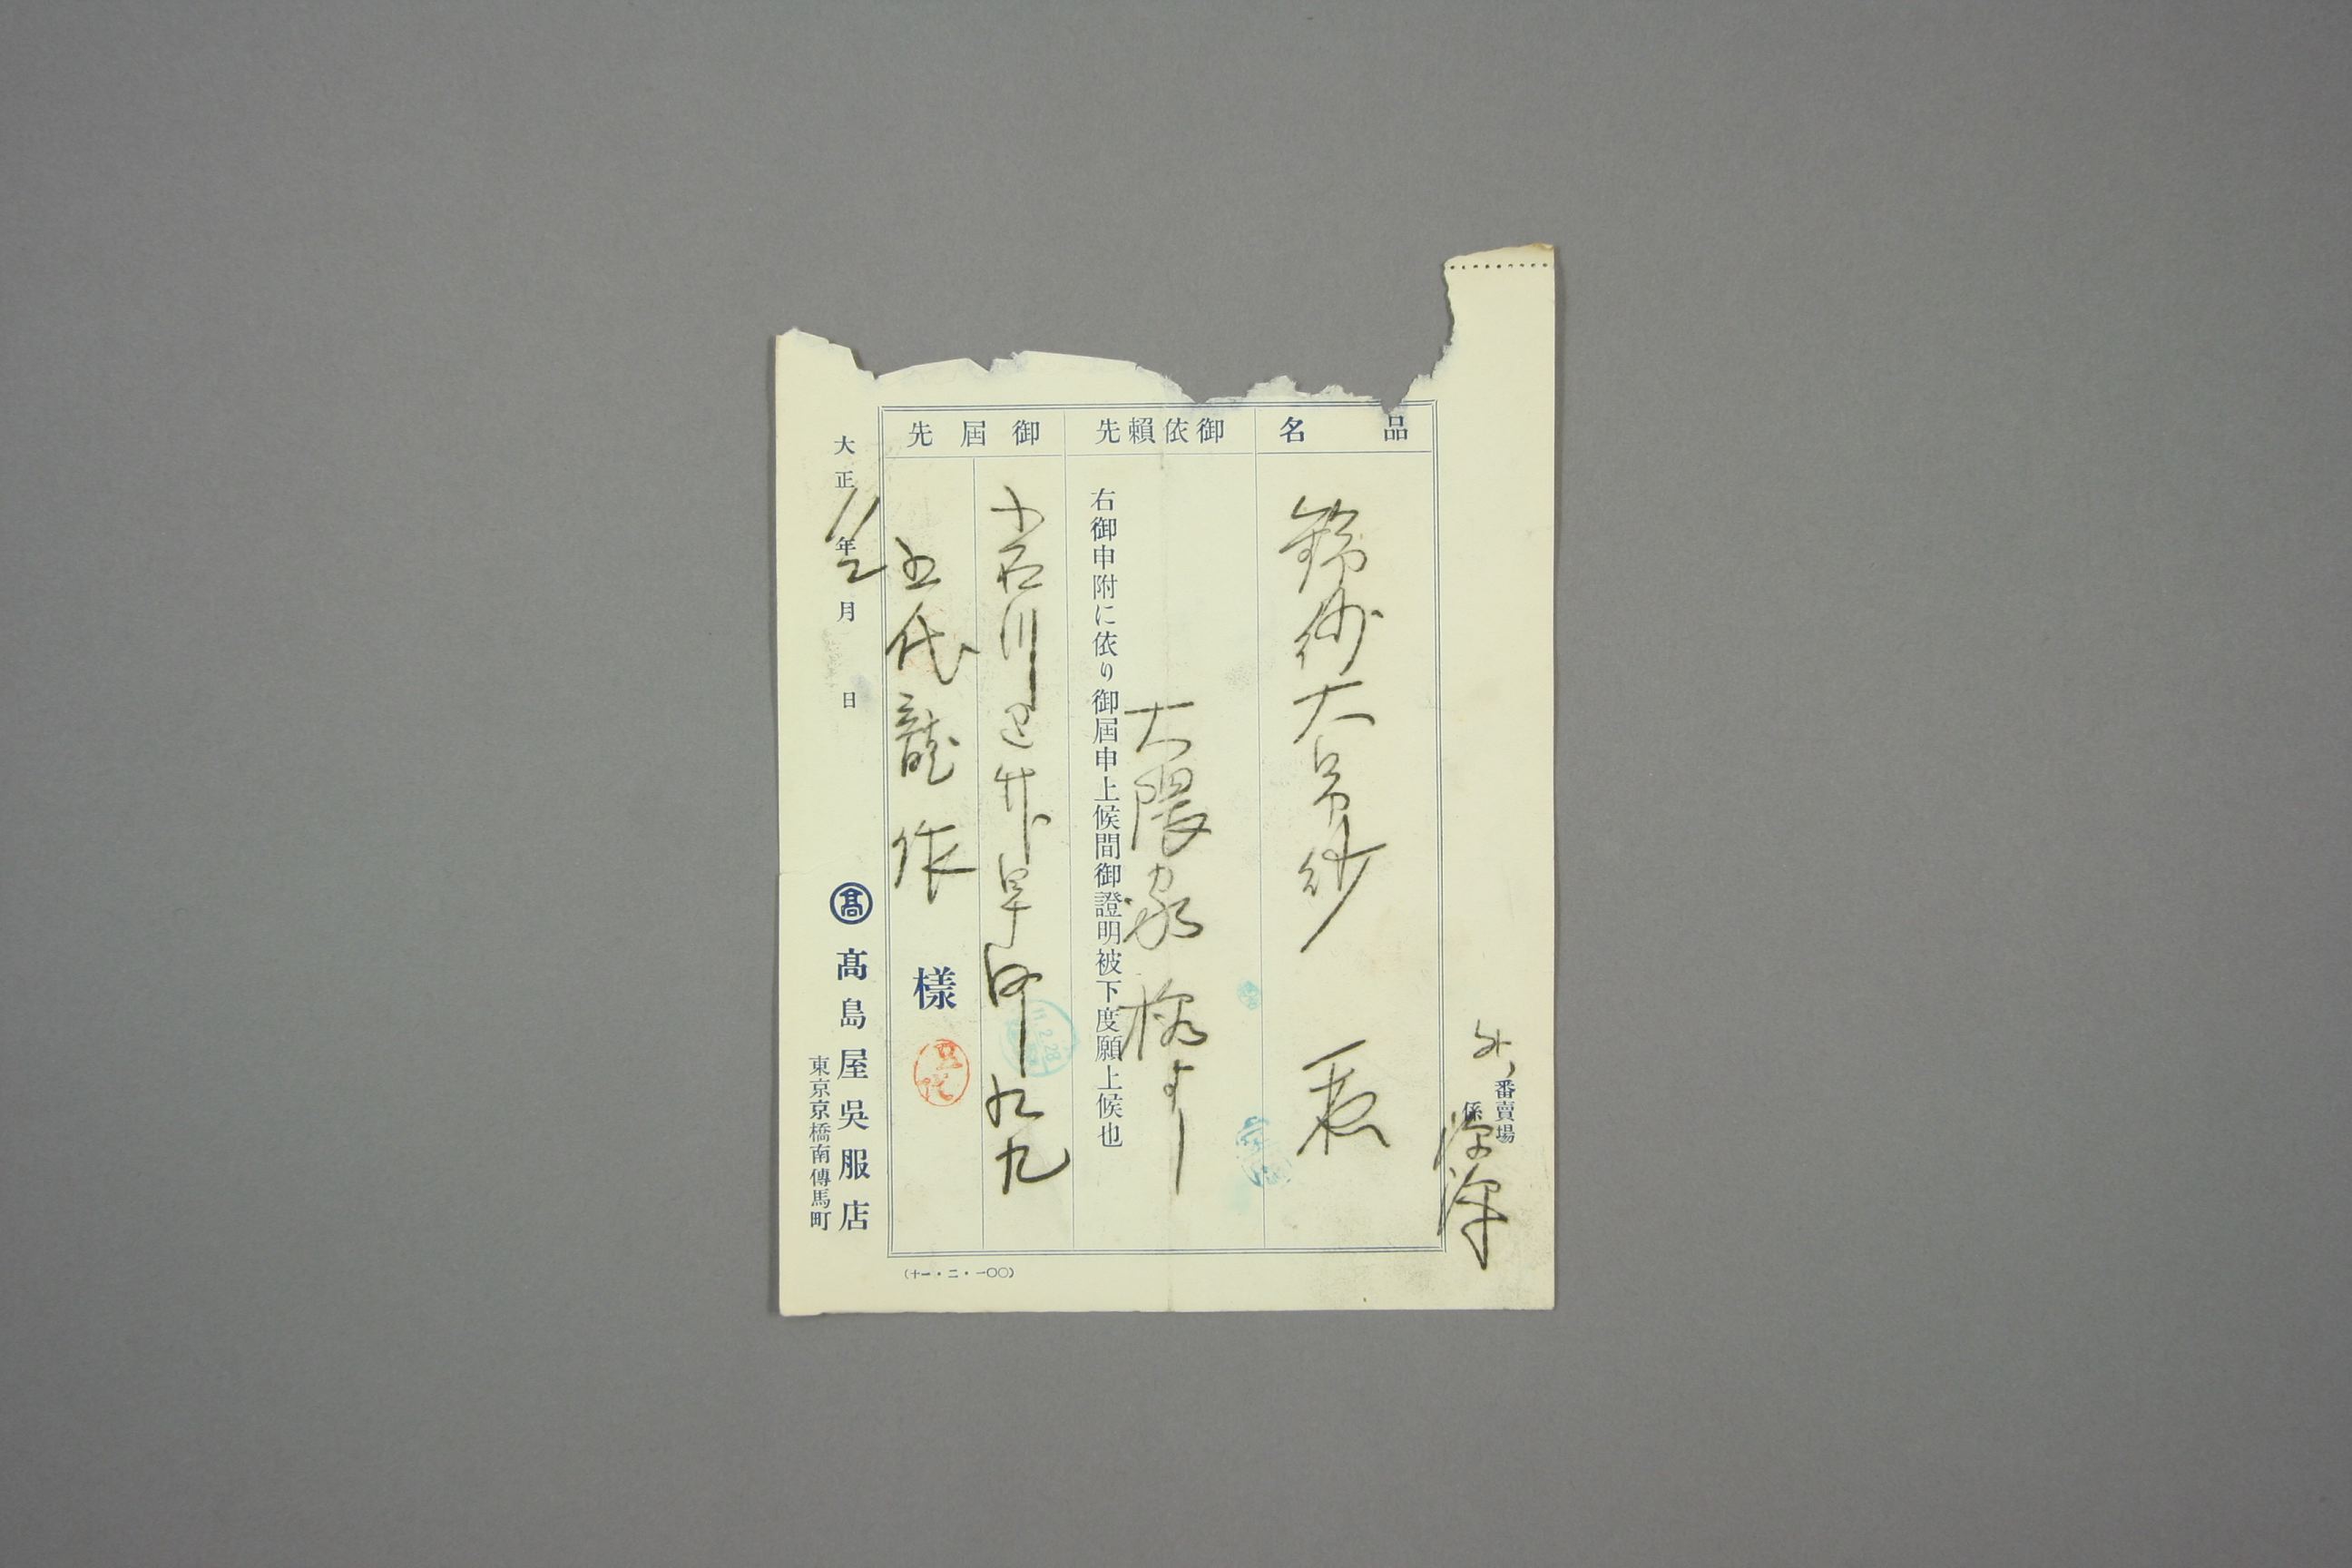 番賣場
係
品名
錦紗大帛紗
御依賴先
大隈家様より
右御申附に依り御屆申上候間御證明被下度願上候也
御屆先
小石川區
九九
五代龍作
様
大正11年2月 日
髙
髙島屋吳服店
東京京橋南傳馬町
(十一・二・一〇〇)